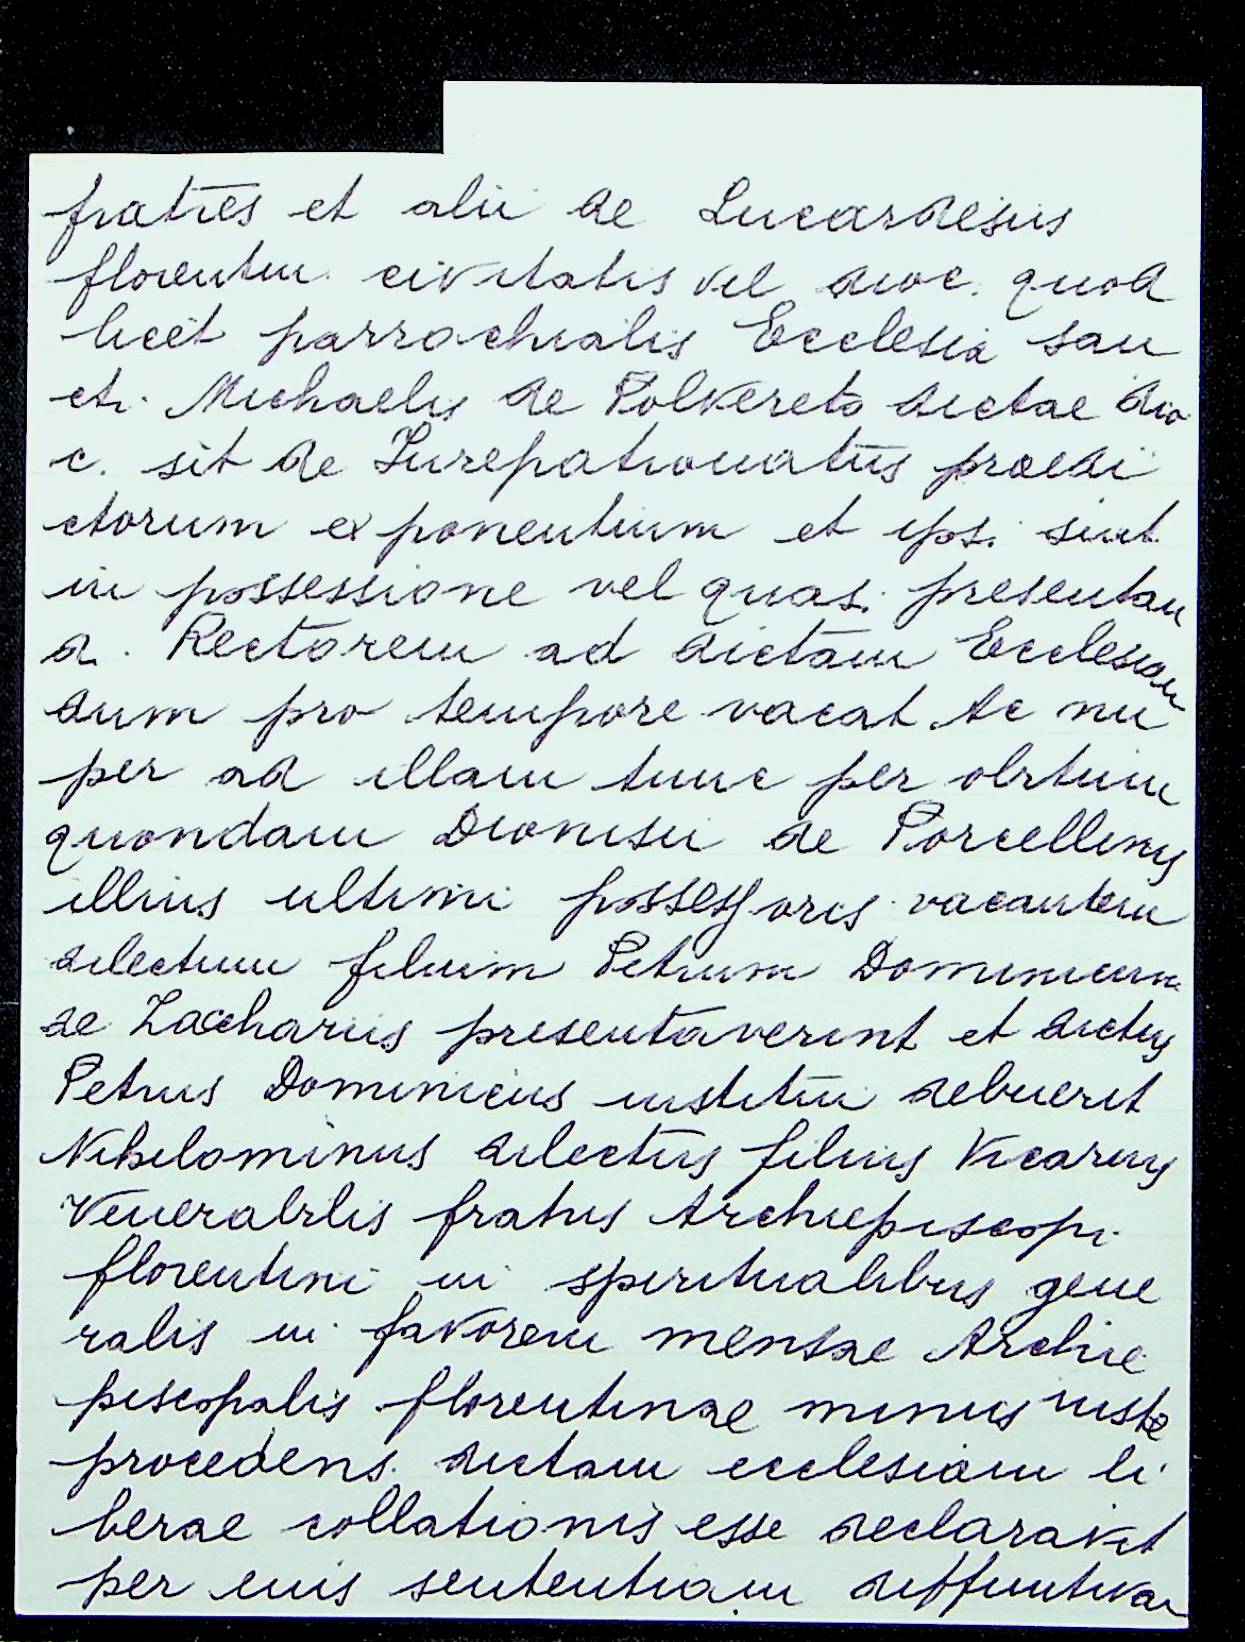 fratres et alii de Lucardesiis
florentin. civitatis vel dioc. quod
licet parrochialis Ecclesia san
cti Michaelis de Polvereto dictae dio
c. sit de Iurepatronatus praedi
ctorum exponentium et ipsi sint
in possessione vel quasi presentan
di Rectorem ad dictam Ecclesiam
dum pro tempore vacat Ac nu
per ad illam tunc per obitum
quondam Dionisii de Porcellinis
illius ultimi possessoris vacantem
dilectum filium Petrum Dominicum
de Zacchariis presentaverint et dictus
Petrus Dominicus institui debuerit
Nihilominus dilectus filius Vicarius
Venerabilis fratris Archiepiscopi
florentini in spiritualibus gene
ralis in favorem mensae Archie
piscopalis florentinae minus iuste
procedens dictam ecclesiam li
berae collationis esse declaravit
per eius sententiam diffinitivam